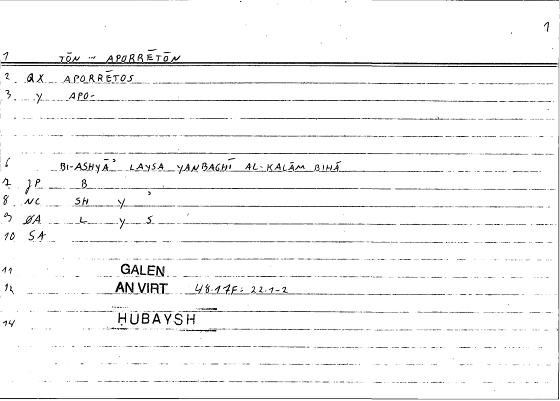 1
1 TŌN ~ APORRĒTŌN
2 QX APORRĒTOS
3 Y APO-
6 BI-ASHYĀʾ LAYSA YANBAGHĪ AL-KALĀM BIHĀ
7 JP B
8 NC SH Y ʾ
9 ØA L Y S
10 SA
11 GALEN
12 AN VIRT 48.17F: 22.1-2
14 ḤUBAYSH